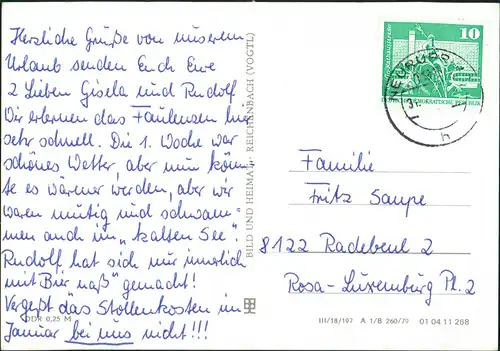 Herzliche Grüße von unserem
Urlaub senden Euch Ewe
2 Lieben Gisela und Rudolf
Wir erlernen das Faulenzen hier
sehr schnell. Die 1. Woche war
schönes Wetter, aber nun könn-
te es wärmer werden, aber wir
waren mutig und schwam-
men auch im „kalten See".
Rudolf hat sich nur innerlich
mit „Bier naß" gemacht!
Vergeßt das Stollenkosten im
Januar bei uns nicht!!!
DDR 0,25 M
BILD UND HEIMAT REICHENBACH (VOGTL)
10
DEUTSCHE DEMOKRATISCHE REPUBLIK
h
Familie
Fritz Saupe
8122 Radebeul 2
Rosa-Luxemburg Pl. 2
III/18/197 A 1/B 260/79 01 04 11 268